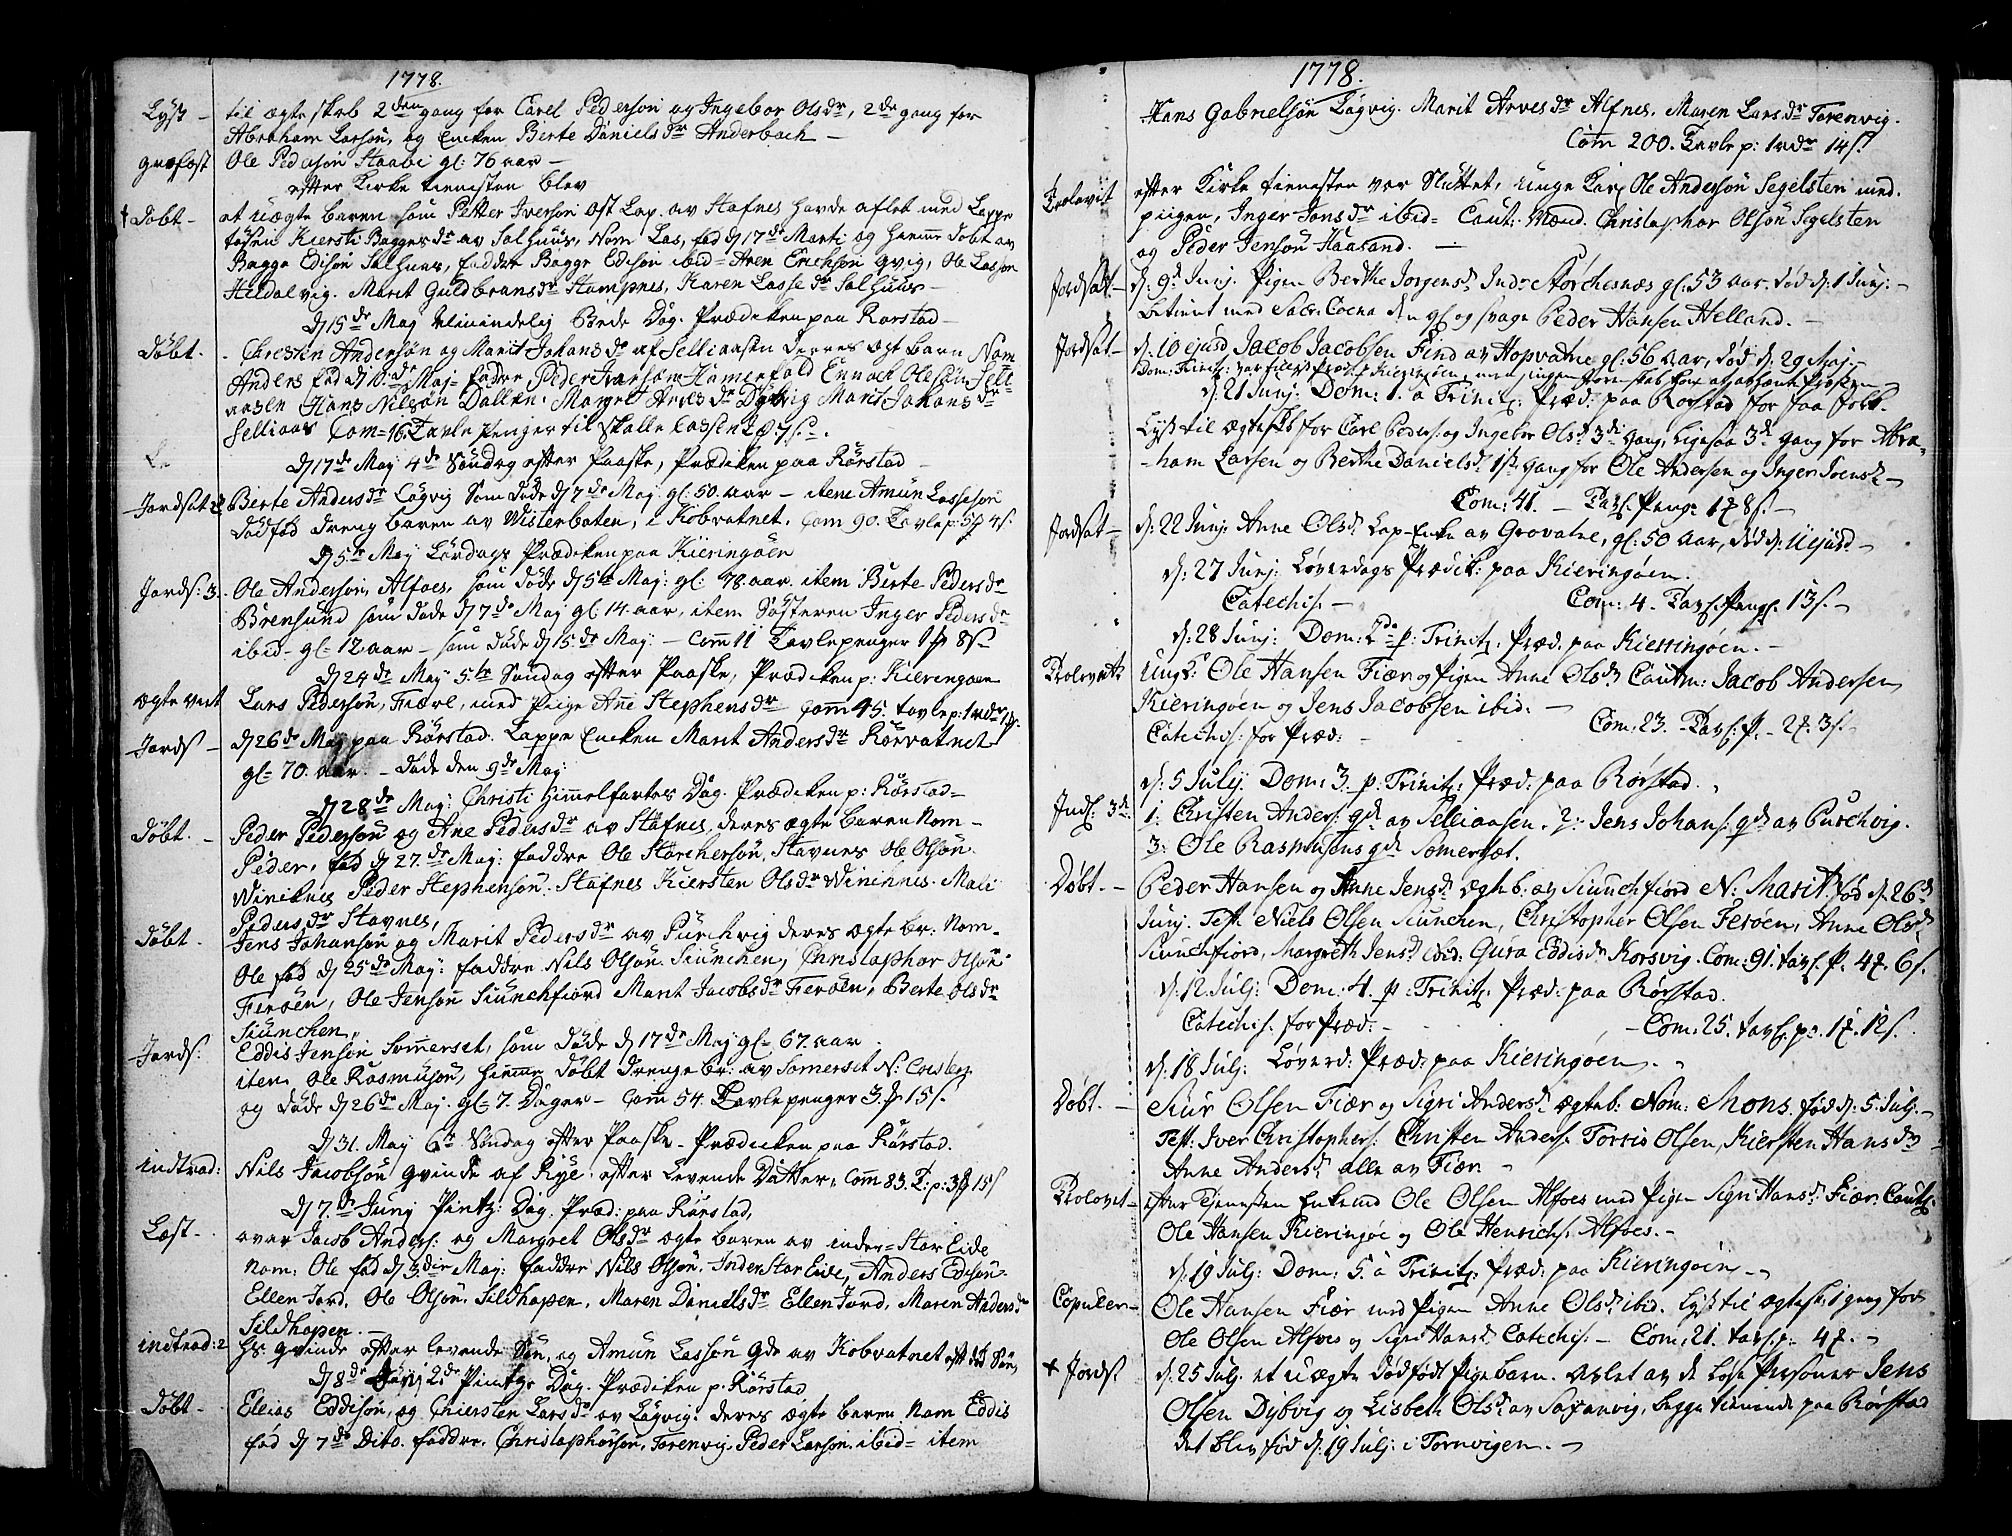 1778.
Lyst - til ægteskab 2den gang for Carel Pederson og Ingebor Olsdr, 2de gang for
Abraham Larsøn, og Encken Berte Danielsdr Anderbach -
græfæst Ole Pedersøn Staabi gl: 76 aar -
efter Kirke tienesten blev
† Døbt - et uægte baren som Petter Iverson Ost Lap. av Stafnes havde aflet med Lappe
tøsen Kiersti Baggesdr av Salhuus, Nom Las, fød d 17de Marti og hieme døbt av
Bagge Edisøn Salhuus, faddre Bagge Edisøn ibid - Aren Erichsøn Qvig, Ole Lassøn
Heldalvig. Marit Guldbransdr Stampnes, Karen Lassedr Salhuus -
d 15de Maj Almindelig Bede Dag. Prædiken paa Rorstad -
Døbt. Christen Andersøn og Marit Johansdr af Selliaasen deres ægt barn Nom
Anders fød d 10de Maj - fadre Peder Ivarsøn Hamerfald Ennock Olesøn Selli-
aasen Hans Nilsøn Dalen. Margret Arnesdr Dybvig Marit Johansdr
Selliaas Com = 16. Tavle Penger til skalle Cassen
d 17de Maj 4de Søndag efter Paaske, Prædiken paa Rørstad -
Jordsat 2 Berte Andersdr Løgvig Som døde d 7de Maj gl: 50. aar - item Amun Lassesøn
dødfød dreng baren av Wisterbaten, i Kobvatnet. Com 90. Tavlep: 4s.
d 5te Maj Lørdags Prædiken paa Kieringøen
Jords: 3. Ole Anderson, Alfoes, som døde d 5te Maj: gl: 78. aar. item Berte Pedersdr
Brensund som døde d 7de Maj gl: 14. aar, item Søsteren Inger Pedersdr
ibid - gl = 12. aar - som døde d 15de Maj: - Com 11 Tavlepenger 8s -
d 24de Maj 5te Søndag efter Paaske, Prædiken p: Kieringøen
ægte viet Lars Pedersøn, Fiære, med Pige Ane Stephensdr Com 45. tavlep: 1 rdr
Jords - d 26de Maj paa Rørstad. Lappe Encken Marit Andersdr Rørvatnet
gl = 70. aar. - døde den 9de Maj:
d 28de Maj: Christi Himmelfartes Dag. Prædiken p: Rørstad -
Døbt. - Peder Pedersøn og Ane Pedersdr av Stafnes, deres ægte baren Nom -
Peder, fød d 27.de Maj: faddre Ole Størchersøn, Stavnes Ole Olsøn.
Winiknes Peder Stephensøn. Stafnes Kiersten Olsdr Winiknes. Mali
Pedersdr Stavnes,
Døbt. Jens Johansøn og Marit Pedersdr av Purchvig deres ægte br: Nom -
Ole fød d 25de Maj: faddre Nils Olsøn. Siunchen, Christophar Olsøn
Ferøen, Ole Jensøn Siunchfiord Marit Jacobsdr Ferøen, Berte Olsdr
Siunchen,
Jords: Eddis Jenson Sommerset, som døde d 17de Maj gl = 67. aar
item Ole Rasmusøn, hieme døbt drenge br: av Somerset N:
og døde d 26de Maj. gl = 7. Dager - Com 54. Tavlepenger 3. 15 s.
d 31. Maj 6te Søndag efter Paaske - Prædicken paa Rørstad.
indtrad: Nils Jacobsøn qvinde af Rye, efter Levende Datter, Com 83. T: p: 3 15s
d 7.de Junj Pintz: Dag. Præd: paa Rørstad,
Læst - over Jacob Anders: og Margret Olsdr ægte baren av inder = StorEide
Nom: Ole fød d 3.die Maj: faddre Nils Olsøn. Inder StorEide, Anders Edisøn -
Ellen Jord, Ole Olsøn. Sildhopen. Maren Danielsdr Ellen Jord, Maren Andersdr
Sildhopen.
indtrad: 2 Hs: qvinde efter levende Søn, og Amun Lassøn Qde av Kobvatnet eft død Søn,
d 8de Junj 2de Pintze Dag. Prædiken p: Rørstad
Døbt - Eleias Eddisøn, og Chiersten Larsdr av Løgvig: deres ægte baren Nom Eddis
fød d 7de Dito. faddre. Christophersøn, Torenvig. Peder Larson. ibid = item
1778.
Hans Gabrielsøn Løgvig. Marit Arnesdr Alfnes, Maren Larsdr Torenvig.
Com 200. Tavle p: 1 rdr 14 s.
Trolovit efter Kirke tienesten var sluttet, unge Karl Ole Andersøn Segelsten med.
piigen, Inger Jonsdr ibid = Caut: Mænd. Christophar Olsøn Segelsten
og Peder Jensøn Haasand. -
Jordsat - d. 9de Junj. Pigen Berthe Jorgensdr Indr Størchesnæs gl: 53 aar. død d: 1 Junj. -
betient med Sacr: Coena den gl og svage Peder Hansen Helland. -
Jordsat - d: 10 ejusd Jacob Jacobsen Find av Hopvatne gl: 56 aar, død d: 29 Maj -
Dom: Trinit: var Præd: Kieringøen, men ingen
d: 21 Junj: Dom: 1. a Trinit: Præd: paa Rørstad for faa folk.
Lyst til ægteskb for Carl Peders: og Ingebor Olsdr 3de gang, ligesaa 3de gang for Abra-
ham Larsen og Berthe Danielsdr 1ste gang for Ole Andersen og Inger Joensdr -
Com: 41. - Tavl: Peng: 1 8 s. -
Jordsat - d: 22 Junj: Anne Olsdr Lap-Enke av Grovatne, gl: 50 aar, død d: 11 ejusd -
d: 27 Junj: Løverdags Prædik: paa Kieringøen.
Catechis. - Com: 4. Tavl: Peng: 13 s. -
d: 28 Junj: Dom: 2de p: Trinit: Præd: paa Kierringøen. -
Trolovede Ungk: Ole Hansen Fiær og Pigen Anne Olsdr Cautm: Jacob Andersen
Kieringøen og Jens Jacobsen ibid: -
Catechis: for Præd: - Com: 23. Tavl: P. - 2 3 s. -
d: 5 Julij Dom: 3. p. Trinit: Præd: paa Rørstad.
Indl: 3de 1: Christen Anders: qde av Selliaasen. 2: Jens Johans. qde av Purchvig.
3: Ole Rasmusens qde Somersæt.
Døbt. - Peder Hansen og Anne Jensdr ægte b. av Siunchfiord N: Marit, fød d. 26de
Junj. Test: Niels Olsen Siunchen, Christopher Olsen Ferøen, Anne Olsdr
Siunchfiord, Margreth Jensdr ibid: Gura Eddisdr Korsvig. Com: 91. tavl. P. 4 6 s.
d: 12 Julj: Dom: 4. p: Trinit: Præd: paa Rørstad.
Catechis. for Præd: - Com: 25. tavl. p. 1 12 s.
d: 18 Julj: Løverd: Præd: paa Kieringøen.
Døbt. - Siur Olsen Fiær og Sigri Andersdr ægte b: Nom: Mons. fød d: 5. Julj: -
Test: Iver Christophers: Christen Anders: Torris Olsen, Kiersten Hansdr
Anne Andersdr alle av Fiær -
Trolovit - efter Tienesten Enkemd Ole Olsen Alfoes med Pigen Sigri Hansdr Fiær Caut:
Ole Hansen Kieringøe og Ole Henrichs. Alfoes. -
d: 19 Julj: Dom: 5. a Trinit: Præd: paa Kieringøen -
Copuleer - Ole Hansen Fiær med Pigen Anne Olsdr ibid. Lyst til ægtesk: 1 gang for
Ole Olsen Alfoes og Sigri Hansdr Catechis. - Com: 21. tavl. p. 4 . -
+ Jords: d: 25 Julj. et uægte dødfødt Pigebarn. avlet av de løse Personer Jens
Olsen Dybvig og Lisbeth Olsdr av Saxenvig, begge tienende paa Rørstad
det blev fød d: 19 Julj: i Tornvigen. -